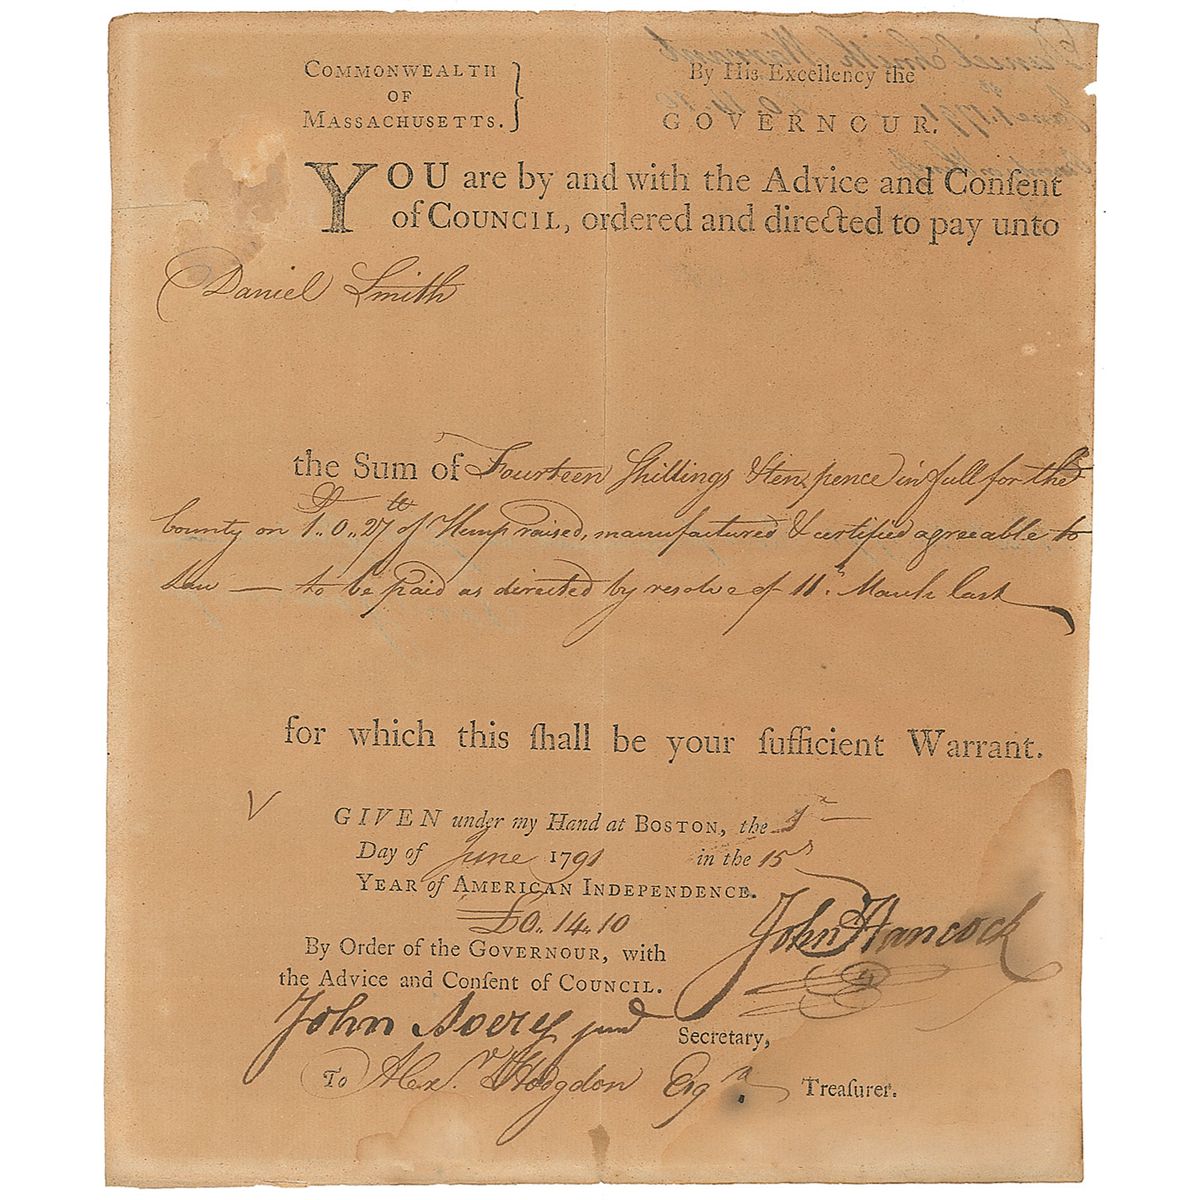 COMMONWEALTH
OF
MASSACHUSETTS.
By His Excellency the
GOVERNOUR.
YOU are by and with the Advice and Conſent
of COUNCIL, ordered and directed to pay unto
Daniel Smith
the Sum of Fourteen Shillings & ten pence in full for the
bounty on 1..0..27 of Hemp raised, manufactured & certified agreeable to
Law — to be paid as directed by resolve of 11th March last
for which this ſhall be your ſufficient Warrant.
GIVEN under my Hand at BOSTON, the 1st
Day of June 1791 in the 15th
YEAR of AMERICAN INDEPENDENCE.
£0..14..10
John Hancock
By Order of the GOVERNOUR, with
the Advice and Conſent of COUNCIL.
John Avery jun Secretary,
To Alexr Hodgdon Esqr Treaſurer.